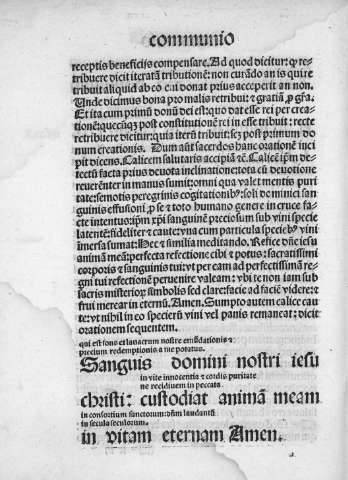 communio
receptis beneficijs compensare. Ad quod dicitur: ꝙ re-
tribuere dicit iteratā tributionē: non curādo an is qui re
tribuit aliquid ab eo cui donat prius acceperit an non.
Unde dicimus bona pro malis retribui: et gratiā ꝓ gr̄a.
Et ita cum primū donū dei est: quo dat esse rei per crea-
tionē: quecūqꝫ post constitutionē rei in esse tribuit: recte
retribuere dicitur: quia iterū tribuit: scꝫ post primum do
num creationis. Dum aūt sacerdos hanc orationē inci
pit dicens. Calicem salutaris accipiā tc̄. Calicē ip̄m de-
tectū facta prius deuota inclinatione: tota cū deuotione
reuerēter in manus sumit: omni qua valet mentis puri
tate: semotis peregrinis cogitationibꝰ: soli dominici san
guinis effusioni ꝓ se et toto humano genere in cruce fa-
cte intentus: ip̄m xp̄i sanguinē preciosum sub vini specie
latentē: fideliter et caute: vna cum particula speciebꝰ vini
īmersa sumat: Hec et similia meditando. Refice dn̄e iesu
animā meā: perfecta refectione cibi et potus: sacratissimi
corporis et sanguinis tui: vt per eam ad perfectissimā re-
gni tui refectionē peruenire valeam: vbi te non iam sub
sacris misterioꝝ simbolis sed clarefacie ad faciē videre: et
frui merear in eternū. Amen. Sumpto autem calice cau
te: vt nihil in eo specierū vini vel panis remaneat: dicit
orationem sequentem.
qui est fons et lauacrum nostre emūdationis et
precium redemptionis a me potatus.
Sanguis domini nostri iesu
in vite innocentia et cordis puritate
ne recidiuem in peccata
christi: custodiat animā meam
in consortium sanctorum: dn̄m laudantū
in secula seculorum.
in vitam eternam Amen.